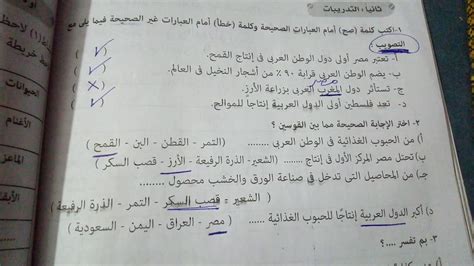 ثانيا : التدريبات
١-اكتب كلمة (صح) أمام العبارات الصحيحة وكلمة (خطأ) أمام العبارات غير الصحيحة فيما يلى مع
التصويب :
أ- تعتبر مصر أولى دول الوطن العربى فى إنتاج القمح.
ب- يضم الوطن العربى قرابة ٩٠ ٪ من أشجار النخيل فى العالم.
مصر
ج- تستأثر دول المغرب العربى بزراعة الأرز.
د- تعد فلسطين أولى الدول العربية إنتاجًا للموالح.
٢- اختر الإجابة الصحيحة مما بين القوسين ؟
أ) من الحبوب الغذائية فى الوطن العربى ........ ( التمر - القطن - البن - القمح )
ب) تحتل مصر المركز الأول فى إنتاج ....... (الشعير- الذرة الرفيعة - الأرز - قصب السكر )
ج) من المحاصيل التى تدخل فى صناعة الورق والخشب محصول ........
( الشعير - قصب السكر - التمر - الذرة الرفيعة )
د) أكبر الدول العربية إنتاجًا للحبوب الغذائية ...... ( مصر - العراق - اليمن - السعودية )
٣- بم تفسر .... ؟
لاحظ
خريطة
الحيوانات
الأغنام
الماعز